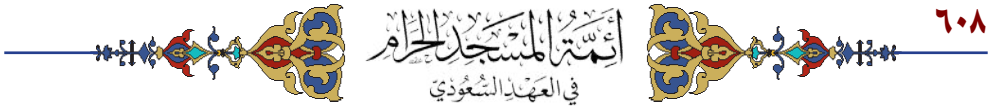 ٦٠٨
أئمة المسجد الحرام
في العهد السعودي